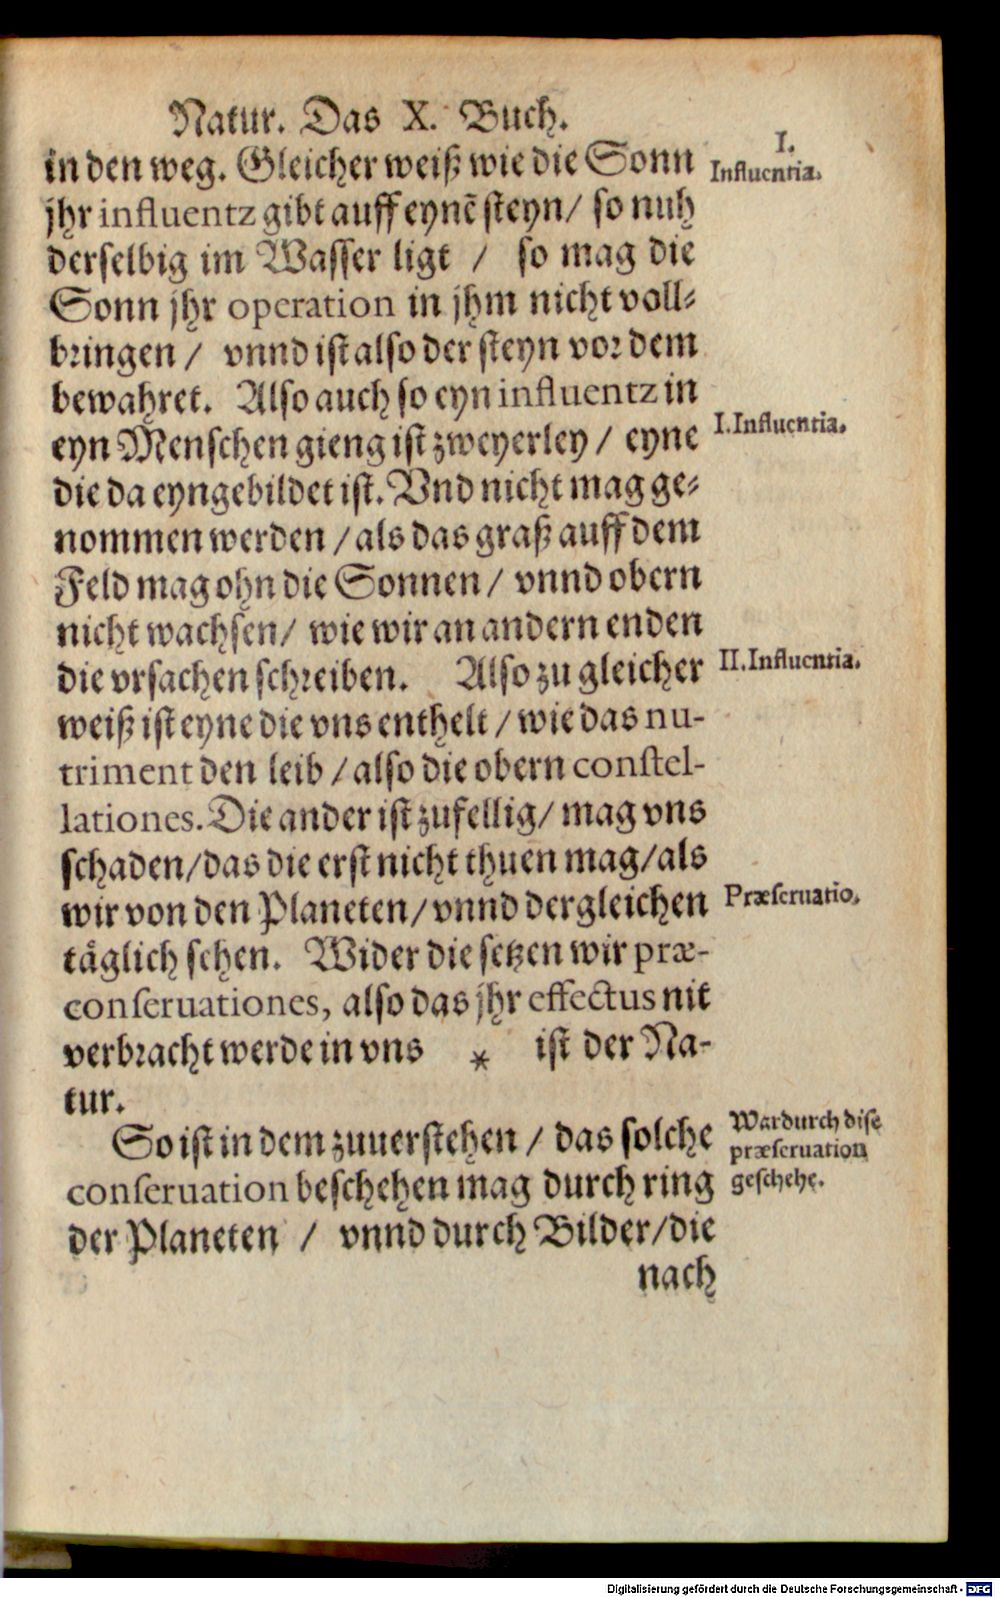 Natur. Das X. Buch.
in den weg. Gleicher weiß wie die Sonn
jhr influentz gibt auff eynẽ steyn/ so nuh
derselbig im Wasser ligt / so mag die
Sonn jhr operation in jhm nicht voll⸗
bringen / vnnd ist also der steyn vor dem
bewahret. Also auch so eyn influentz in
eyn Menschen gieng ist zweyerley / eyne
die da eyngebildet ist. Vnd nicht mag ge⸗
nommen werden / als das graß auff dem
Feld mag ohn die Sonnen / vnnd obern
nicht wachsen/ wie wir an andern enden
die vrsachen schreiben. Also zu gleicher
weiß ist eyne die vns enthelt / wie das nu-
triment den leib / also die obern constel-
lationes. Die ander ist zufellig/ mag vns
schaden/das die erst nicht thuen mag/als
wir von den Planeten/vnnd dergleichen
täglich sehen. Wider die setzen wir præ-
conseruationes, also das jhr effectus nit
verbracht werde in vns * ist der Na-
tur.
So ist in dem zuuerstehen / das solche
conseruation beschehen mag durch ring
der Planeten / vnnd durch Bilder/die
nach
I.
Influentia.
I.Influentia.
II.Influentia.
Præseruatio.
Wardurch dise
præseruation
geschehe.
Digitalisierung gefördert durch die Deutsche Forschungsgemeinschaft - DFG